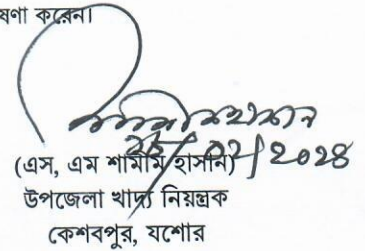 ষণা করেন।
(এস, এম শামীম হাসান)
উপজেলা খাদ্য নিয়ন্ত্রক
কেশবপুর, যশোর